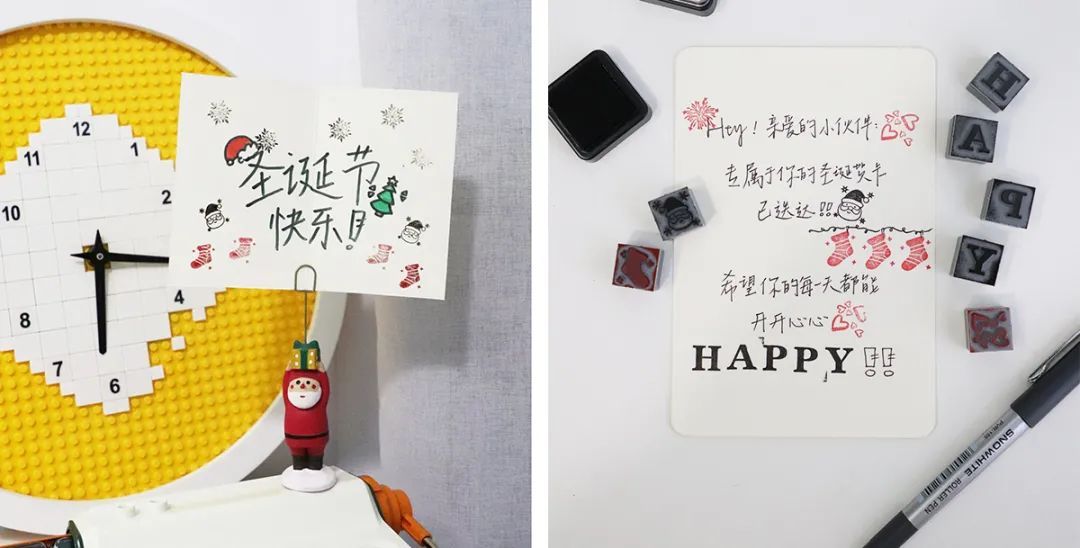 12
11
1
10
2
8
4
7
6
圣诞节
快乐!!
Hey! 亲爱的小伙伴:
专属于你的圣诞贺卡
已送达!!
希望你的每一天都能
开开心心
HAPPY!!
H
A
P
Y
SNOWHITE
ROLLER PEN